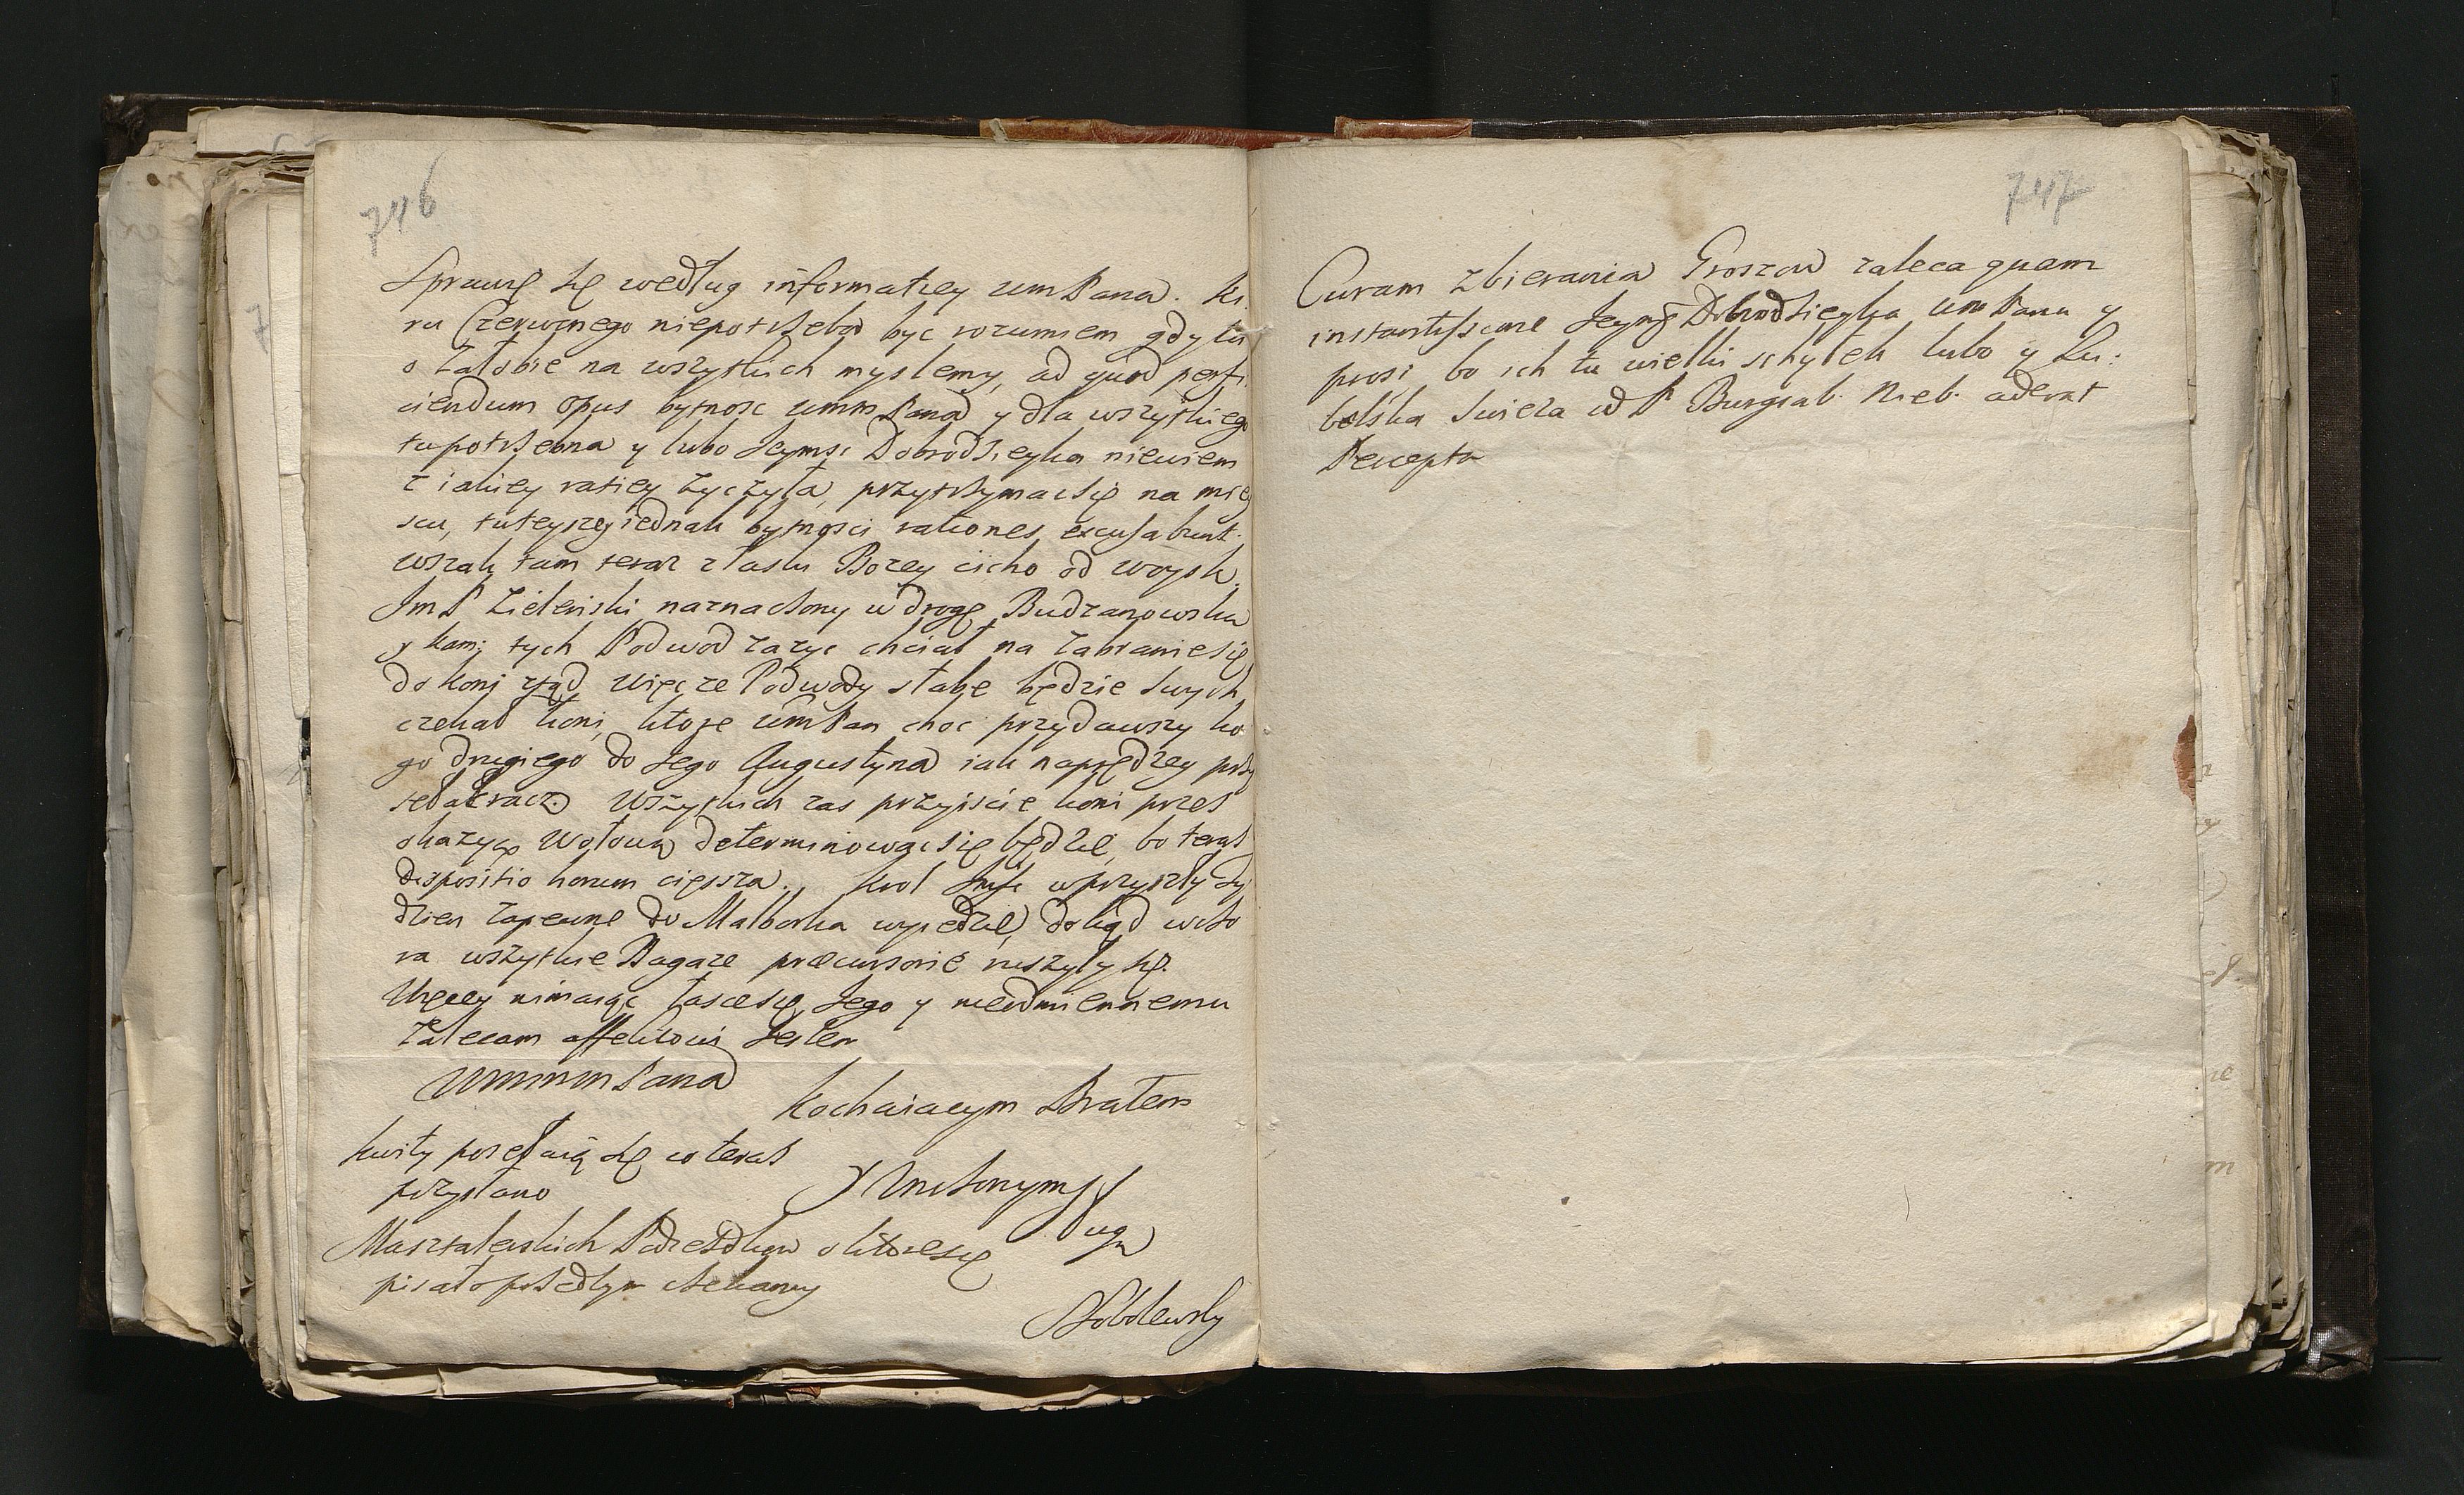 746
Sprawię się według informatiey umPana. Ki
ru Czerwonego niepotrzeba być rozumiem gdy tu
o żałobie na wszytkich myslemy, ad quod perfi
ciendum opus bytnosc ummPana y dla wszytkiego
tu potrzebna y lubo Jeymsc Dobrodzieyka niewiem
z iakiey ratiey życzyła, przytrzymac się na miey
scu, tuteyszey iednak bytnosci rationes excusabunt.
wszak tam teraz z łaski Bozey cicho od woysk.
JmP Zielenski naznaczony w drogę Budzanowska
y kam; tych Podwod zazyc chciał na zabranie się
do koni rząd, więc ze Podwody stałe będzie swych
czekał koni, ktore umPan choc przydawszy ko
go drugiego do Jego Augustyna iak naprędzey przy
Wszytkich zas przyiscie koni przez
okazyą Wołową determinowac się będzie, bo teraz
dispositio horum cięzsza. Krol Jmsc w przyszły ty
dzien zapewne do Malborka wyiedzie, dokąd wczo
ra wszytkie Bagaze præcursorie ruszyły się.
Więcey nimaiąc łasce się Jego y nieodmiennemu
zalecam affektowi Jestem
UmmmmPana
Kochaiacym Bratem
kwity posełaią się co teraz
przysłano
y Unizonym Sługą
Masztalerskich o ktore się
pisało czekamy
Sobolewsky
747
Curam zbierania Groszow zaleca quam
instantissime Jeymsc Dobrodzieyka umPanu y
prosi bo ich tu wielki schyłek lubo y Lu:
belska swieza od P Burgrab. Nieb. aderat
Percepta